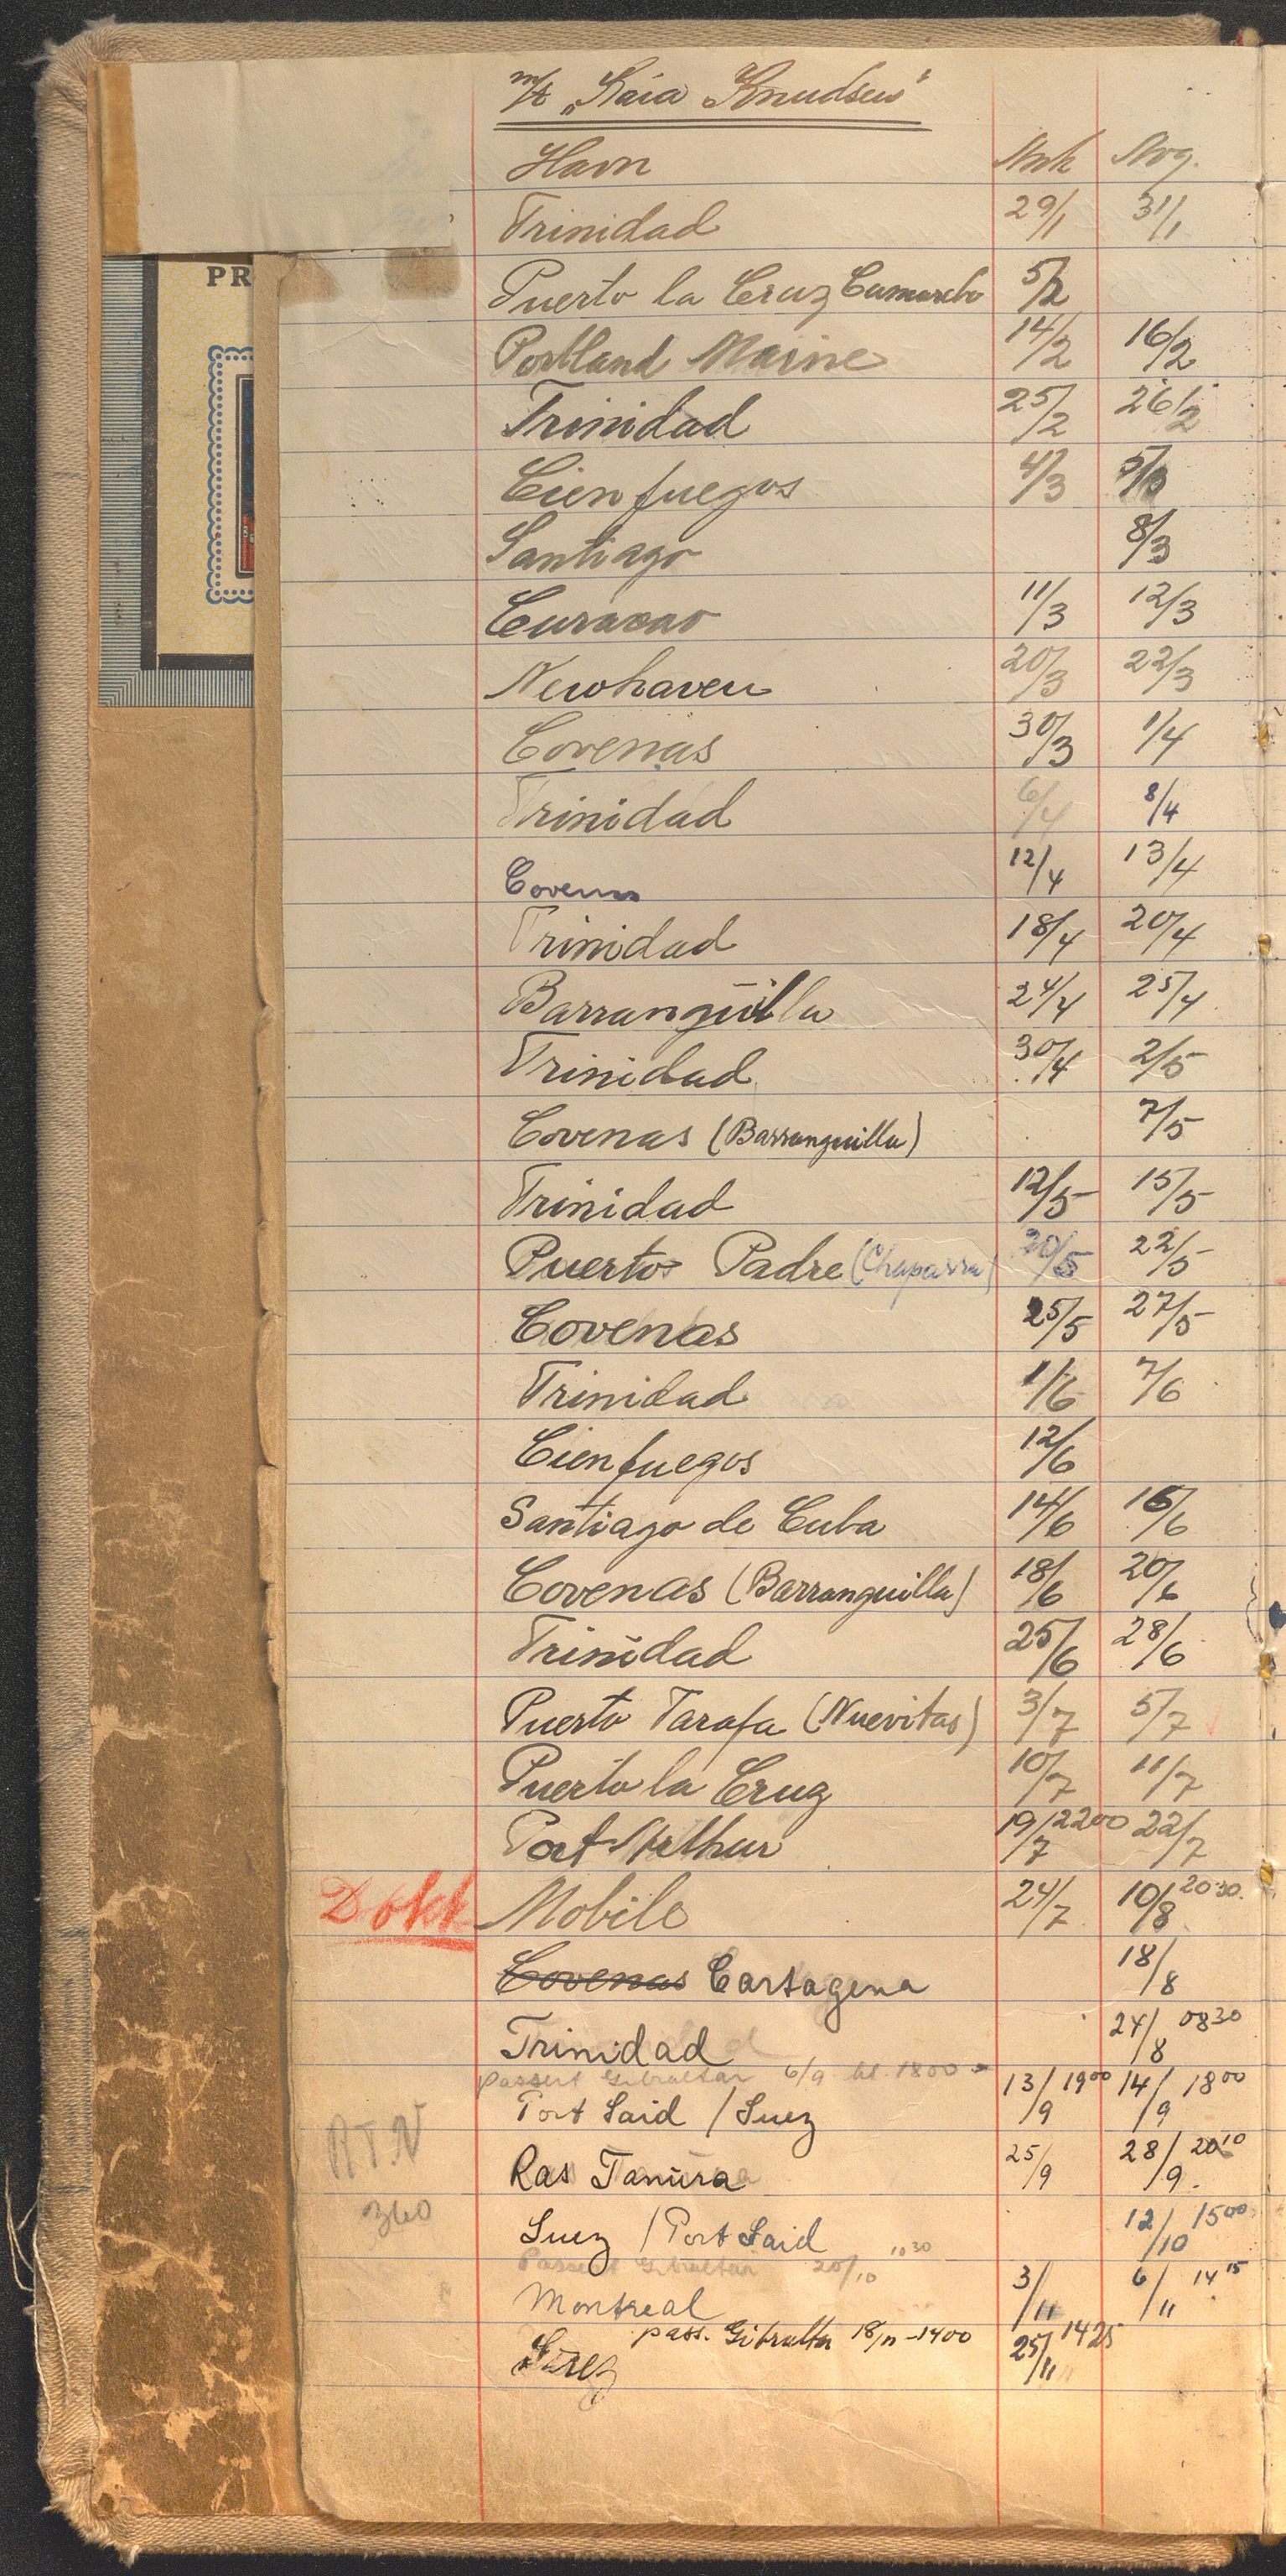 m/t "Kaia Knudsen"
Havn Ank Avg.
Trinidad 29/1 31/1
Puerto la Cruz 5/2
PR
Portland Maine 14/2 16/2
Trinidad 25/2 26/2
Cienfuegos 4/3 5/3
Santiago 8/3
Curacao 11/3 12/3
Newhaven 20/3 22/3
Covenas 30/3 1/4
Trinidad 6/4 8/4
Covenas 12/4 13/4
Trinidad 18/4 20/4
Barranquilla 24/4 25/4
Trinidad 30/4 2/5
Covenas (Barranquilla) 7/5
Trinidad 12/5 15/5
Puerto Padre (Chaparra) 20/5 22/5
Covenas 25/5 27/5
Trinidad 1/6 7/6
Cienfuegos 12/6
Santiago de Cuba 14/6 16/6
Covenas (Barranquilla) 18/6 20/6
Trinidad 25/6 28/6
Puerto Tarafa (Nuevitas) 3/7 5/7
Puerto la Cruz 10/7 11/7
Port Arthur 19/7 2200 22/7
Dokk Mobile 24/7 10/8 2030.
Covenas Cartagena 18/8
Trinidad 24/8 0830
Passert Gibraltar 6/9 kl. 1800
Port Said / Suez 13/9 1900 14/9 1800
RTN
Ras Tanura 25/9 28/9 2010
360
Suez / Port Said 12/10 1500
Passert Gibraltar 20/10 1030
Montreal 3/11 6/11 1415
pass. Gibralta 18/11 - 1400
Suez 25/11 1425